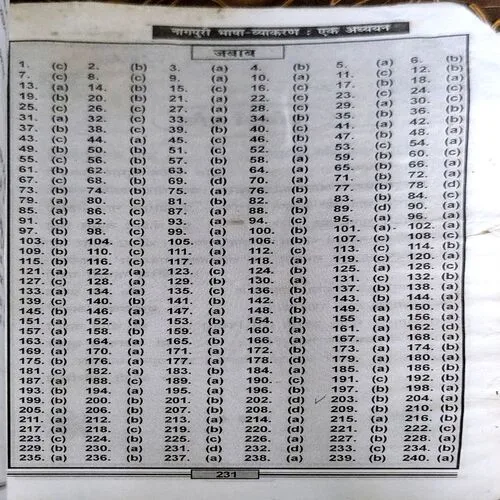 नागपुरी भाषा-व्याकरण : एक अध्ययन
जवाब
1. (c) 2. (b) 3. (a) 4. (b) 5. (a) 6. (b)
7. (c) 8. (c) 9. (a) 10. (a) 11. (c) 12. (b)
13. (a) 14. (b) 15. (c) 16. (c) 17. (b) 18. (a)
19. (b) 20. (b) 21. (a) 22. (c) 23. (c) 24. (c)
25. (b) 26. (c) 27. (a) 28. (c) 29. (a) 30. (c)
31. (a) 32. (c) 33. (a) 34. (b) 35. (b) 36. (b)
37. (b) 38. (c) 39. (b) 40. (c) 41. (c) 42. (b)
43. (c) 44. (a) 45. (c) 46. (b) 47. (b) 48. (a)
49. (c) 50. (b) 51. (c) 52. (c) 53. (c) 54. (a)
55. (c) 56. (b) 57. (b) 58. (a) 59. (b) 60. (c)
61. (b) 62. (b) 63. (c) 64. (a) 65. (b) 66. (a)
67. (c) 68. (b) 69. (d) 70. (a) 71. (b) 72. (a)
73. (b) 74. (b) 75. (a) 76. (b) 77. (b) 78. (d)
79. (a) 80. (c) 81. (b) 82. (a) 83. (b) 84. (c)
85. (a) 86. (c) 87. (a) 88. (b) 89. (d) 90. (a)
91. (d) 92. (c) 93. (a) 94. (c) 95. (a) 96. (a)
97. (b) 98. (c) 99. (a) 100. (b) 101. (a) 102. (a)
103. (b) 104. (c) 105. (a) 106. (b) 107. (c) 108. (c)
109. (b) 110. (c) 111. (a) 112. (c) 113. (c) 114. (b)
115. (b) 116. (c) 117. (a) 118. (a) 119. (c) 120. (a)
121. (a) 122. (a) 123. (c) 124. (b) 125. (a) 126. (c)
127. (c) 128. (a) 129. (b) 130. (a) 131. (c) 132. (b)
133. (a) 134. (a) 135. (c) 136. (a) 137. (b) 138. (b)
139. (c) 140. (b) 141. (b) 142. (d) 143. (b) 144. (a)
145. (b) 146. (a) 147. (a) 148. (a) 149. (a) 150. (a)
151. (a) 152. (a) 153. (b) 154. (b) 155. (a) 156. (a)
157. (a) 158. (b) 159. (a) 160. (a) 161. (a) 162. (d)
163. (a) 164. (a) 165. (b) 166. (a) 167. (a) 168. (a)
169. (a) 170. (a) 171. (a) 172. (b) 173. (a) 174. (b)
175. (b) 176. (a) 177. (a) 178. (d) 179. (a) 180. (a)
181. (c) 182. (a) 183. (b) 184. (b) 185. (a) 186. (b)
187. (a) 188. (c) 189. (a) 190. (c) 191. (c) 192. (b)
193. (b) 194. (a) 195. (a) 196. (b) 197. (b) 198. (a)
199. (b) 200. (a) 201. (b) 202. (d) 203. (b) 204. (a)
205. (a) 206. (b) 207. (b) 208. (d) 209. (b) 210. (b)
211. (a) 212. (b) 213. (a) 214. (a) 215. (a) 216. (b)
217. (a) 218. (c) 219. (b) 220. (d) 221. (b) 222. (c)
223. (c) 224. (b) 225. (c) 226. (a) 227. (b) 228. (a)
229. (b) 230. (a) 231. (d) 232. (d) 233. (c) 234. (b)
235. (a) 236. (b) 237. (a) 238. (a) 239. (b) 240. (a)
231